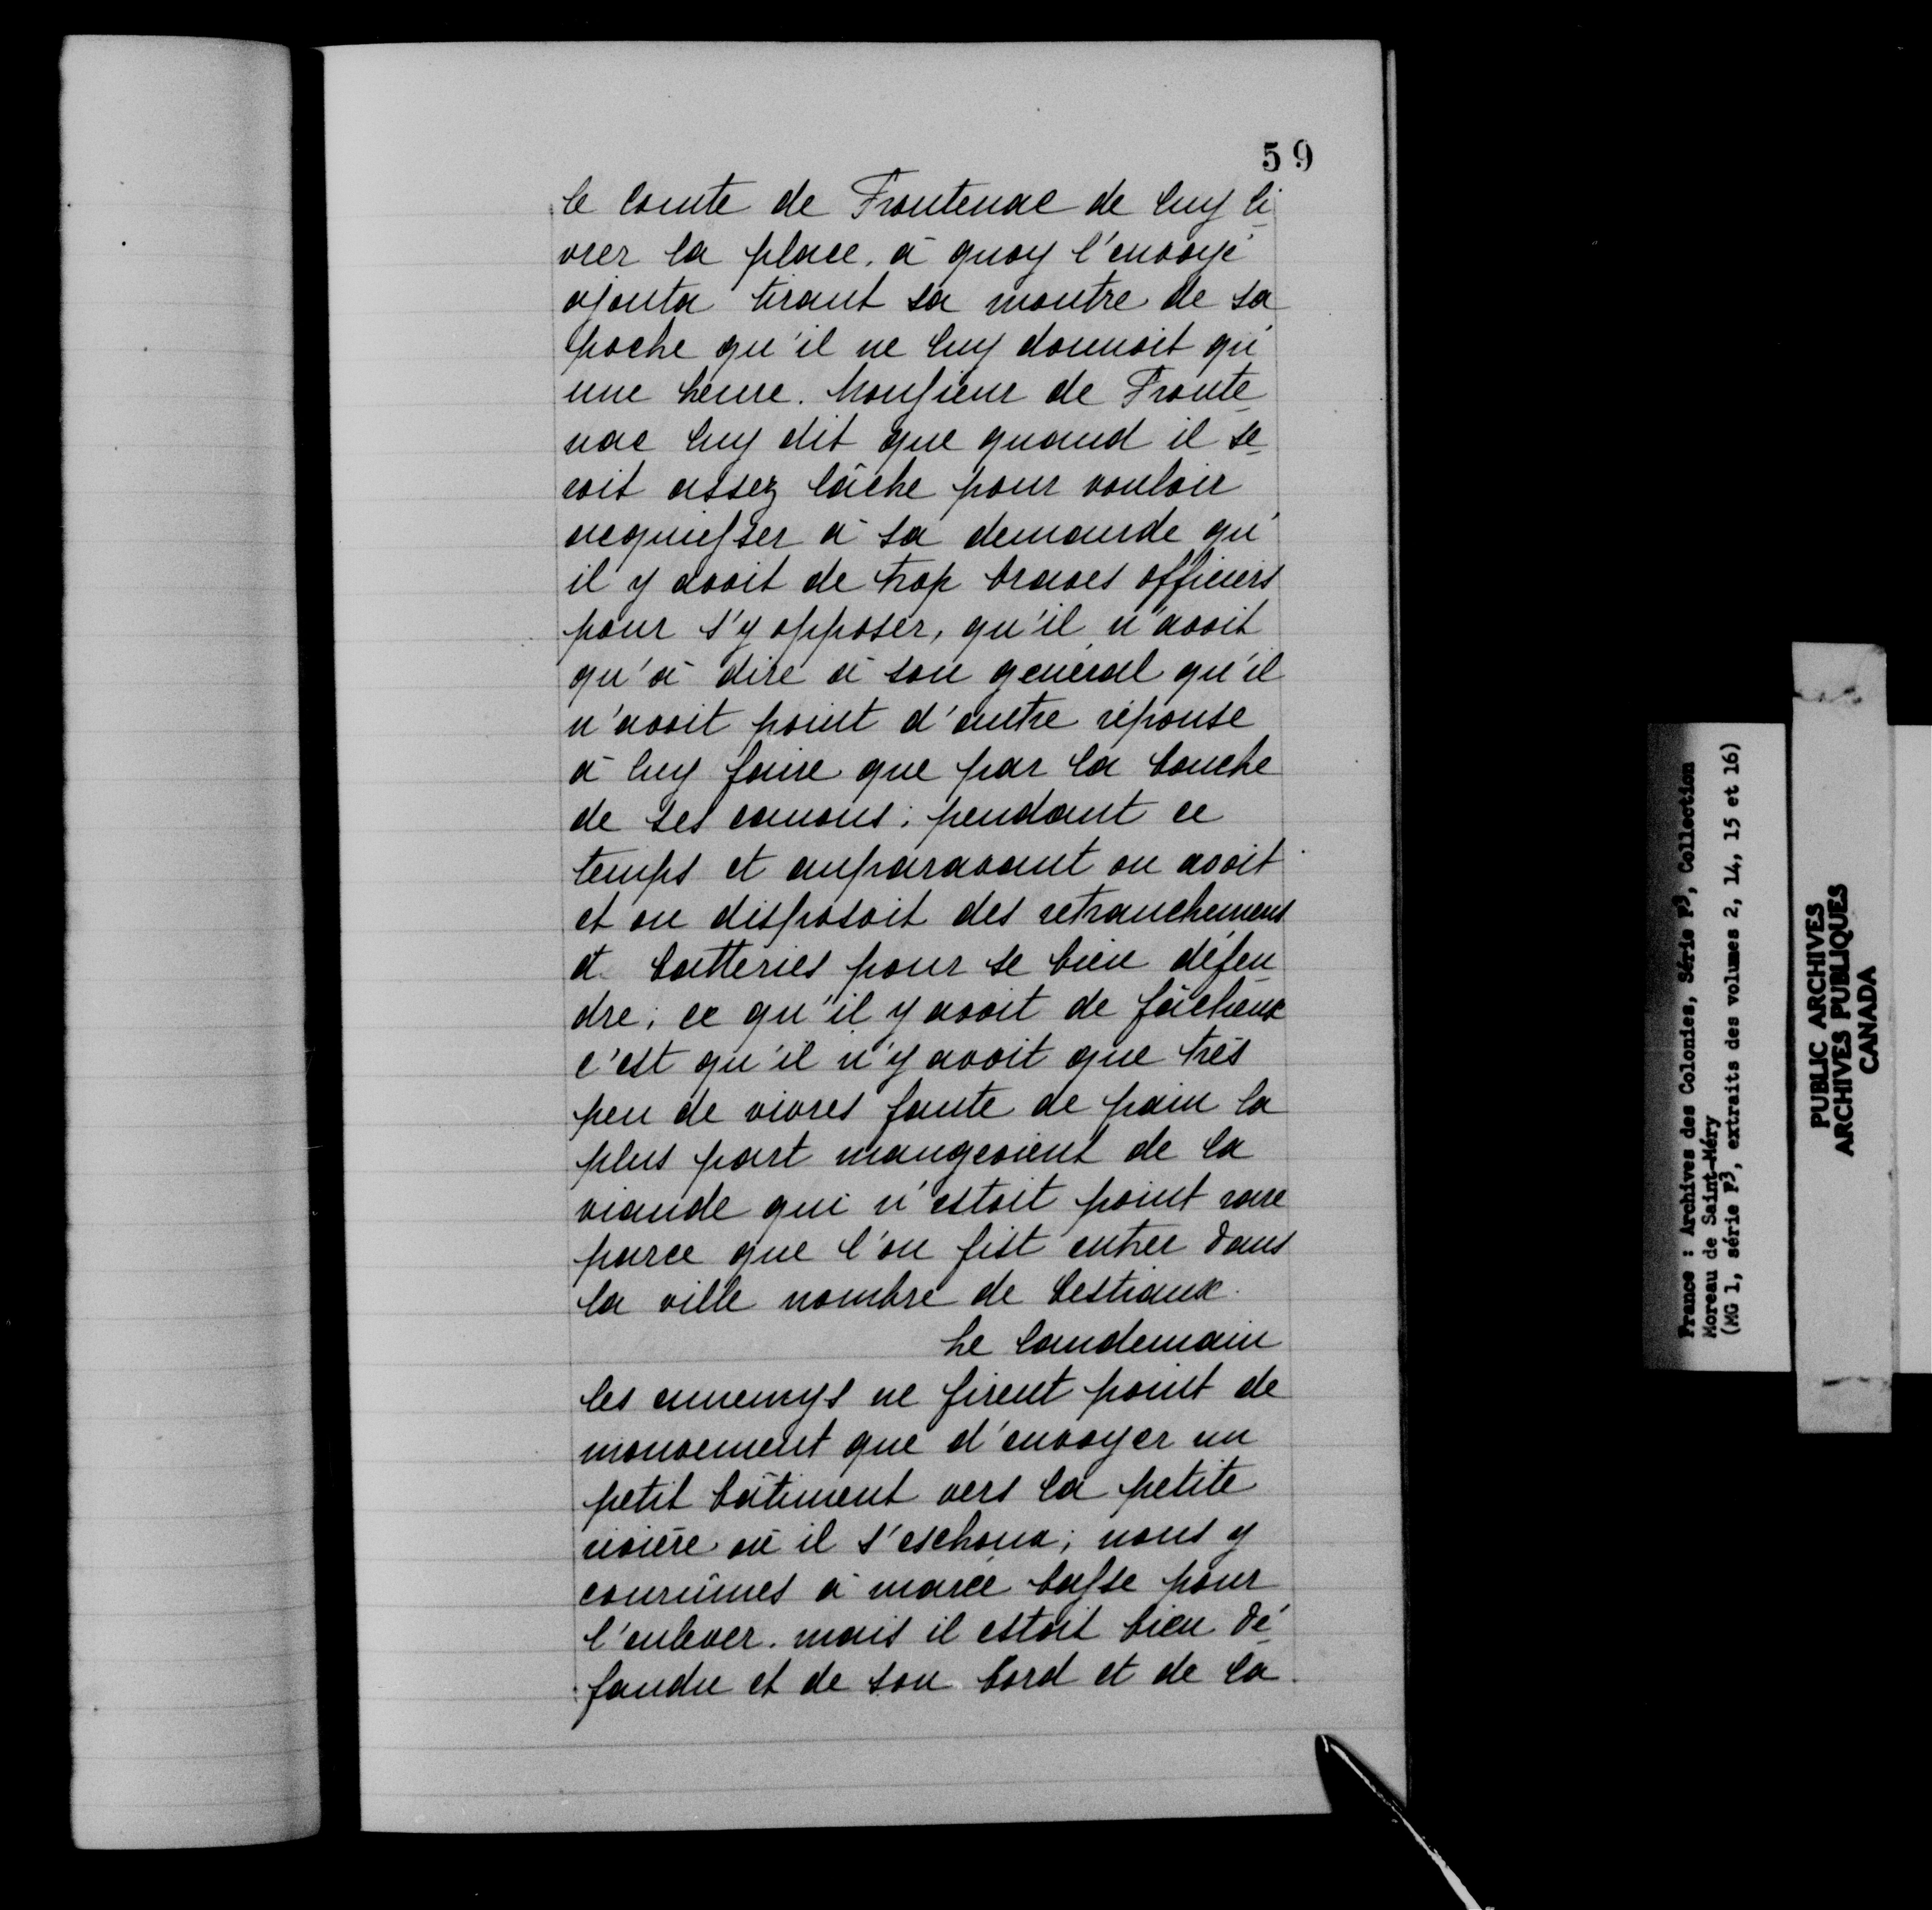 59
le Comte de Frontenac de luy li
vrer la place. à quoy l'envoyé
ajouta tirant sa montre de sa
poche qu'il ne luy donnoit qu'
une heure. Monsieur de Fronte
nac luy dit que quand il se
roit assez lâche pour vouloir
acquiesser à sa demande qu'
il y avoit de trop braves officiers
pour s'y opposer, qu'il n'avoit
qu'à dire à son général qu'il
n'avoit point d'autre réponse
à luy faire que par la bouche
de ses canons; pendant ce
temps et auparavant on avoit
et on disposoit des retranchemens
et batteries pour se bien défen
dre; ce qu'il y avoit de fâcheux
c'est qu'il n'y avoit que très
peu de vivres faute de pain la
plus part mangeoient de la
viande qui n'estoit point rare
parce que l'on fist entrer dans
la ville nombre de bestiaux.
Le landemain
les ennemys ne firent point de
mouvement que d'envoyer un
petit bâtiment vers la petite
rivière où il s'eschoua; nous y
courûmes à marée basse pour
l'enlever. mais il estoit bien dé
fandu et de son bord et de la
France : Archives des Colonies, Série F3, Collection
Moreau de Saint-Méry
(MG 1, série F3, extraits des volumes 2, 14, 15 et 16)
PUBLIC ARCHIVES
ARCHIVES PUBLIQUES
CANADA